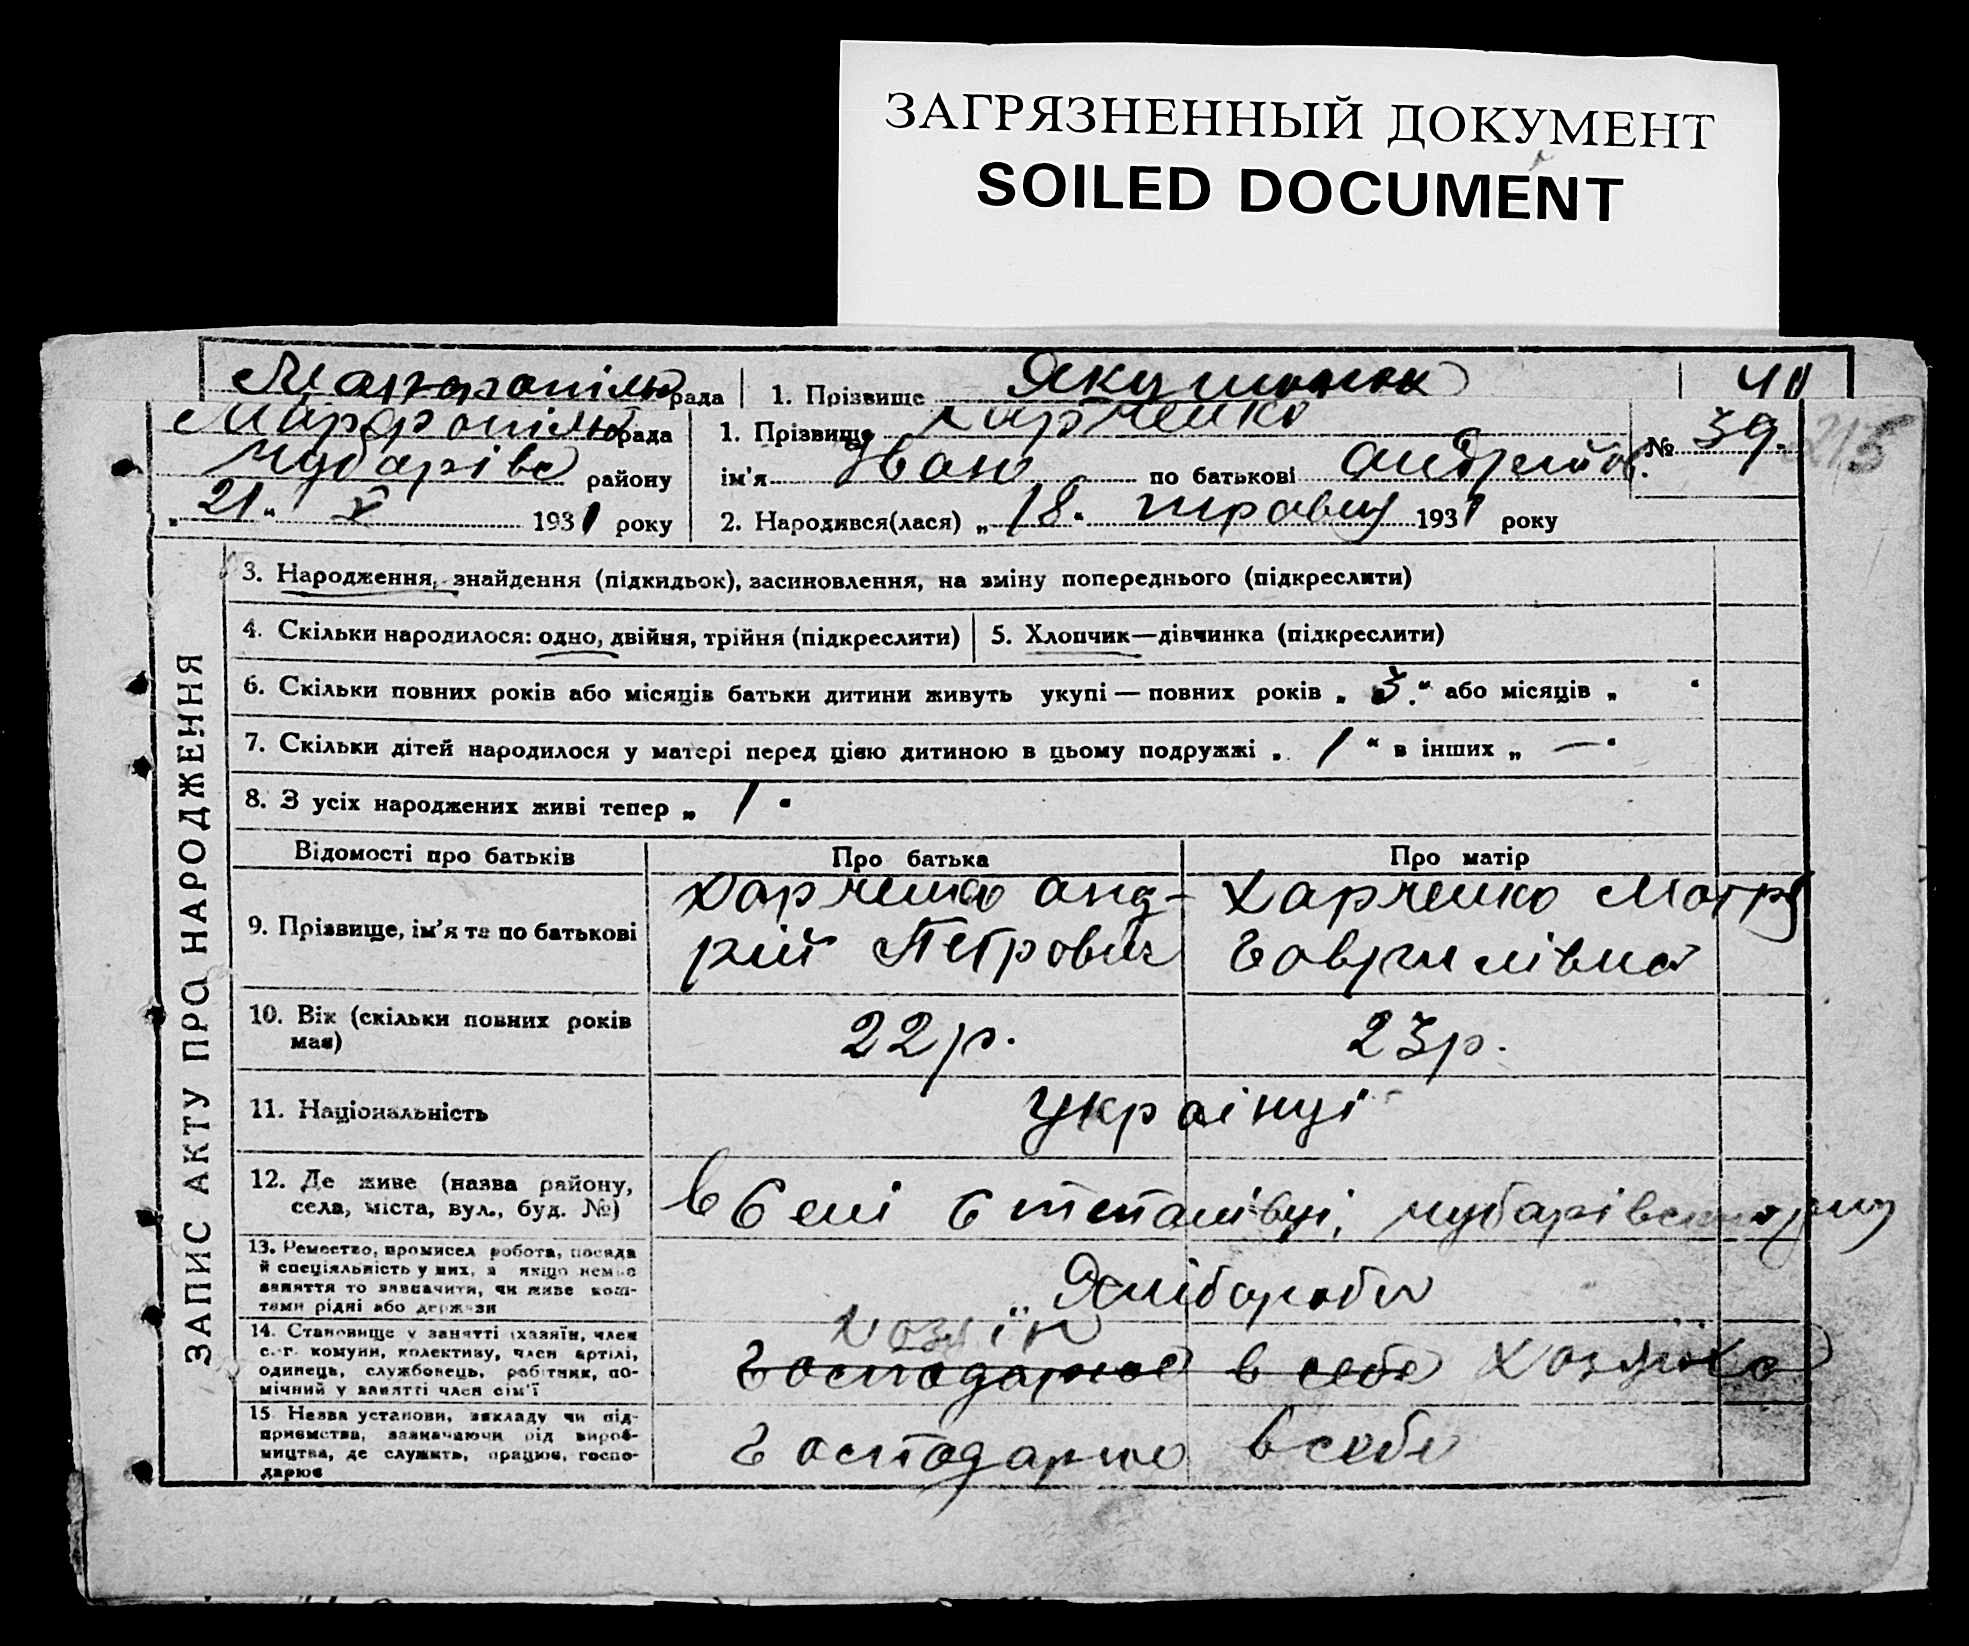 ЗАГРЯЗНЕННЫЙ ДОКУМЕНТ
SOILED DOCUMENT
рада 1. Прізвище 40
рада 1. Прізвище Харченко № 39. 215
Чубарівс району ім'я Іван по батькові Андрійов.
„21" V 1931 року 2. Народився(лася) „18" травня 1931 року
ЗАПИС АКТУ ПРО НАРОДЖЕННЯ
3. Народження, знайдення (підкидьок), засиновлення, на зміну попереднього (підкреслити)
4. Скільки народилося: одно, двійня, трійня (підкреслити) 5. Хлопчик—дівчинка (підкреслити)
6. Скільки повних років або місяців батьки дитини живуть укупі — повних років „3." або місяців „ "
7. Скільки дітей народилося у матері перед цією дитиною в цьому подружжі „1" в інших „—"
8. З усіх народжених живі тепер „1"
Відомості про батьків Про батька Про матір
9. Прізвище, ім'я та по батькові
Харченко Анд-
рій Петрович
Харченко Мотря
Гаврилівна
10. Вік (скільки повних років
має)
22 р. 23 р.
11. Національність українці
12. Де живе (назва району,
села, міста, вул., буд. №)
в селі Степанівці, Чубарівського р-ну
13. Ремество, промисел робота, посада
й спеціяльність у них, а якщо немає
заняття то зазначити, чи живе кош-
тами рідні або держави
Хлібороби
14. Становище у занятті (хазяїн, член
с.-г. комуни, колективу, член артілі,
одинець, службовець, робітник, по-
мічний у занятті член сім'ї
хозяїн
Господарює в себе хозяйка
15. Назва установи, закладу чи під-
приємства, зазначаючи рід вироб-
ництва, де служить, працює, госпо-
дарює
Господарює в себе